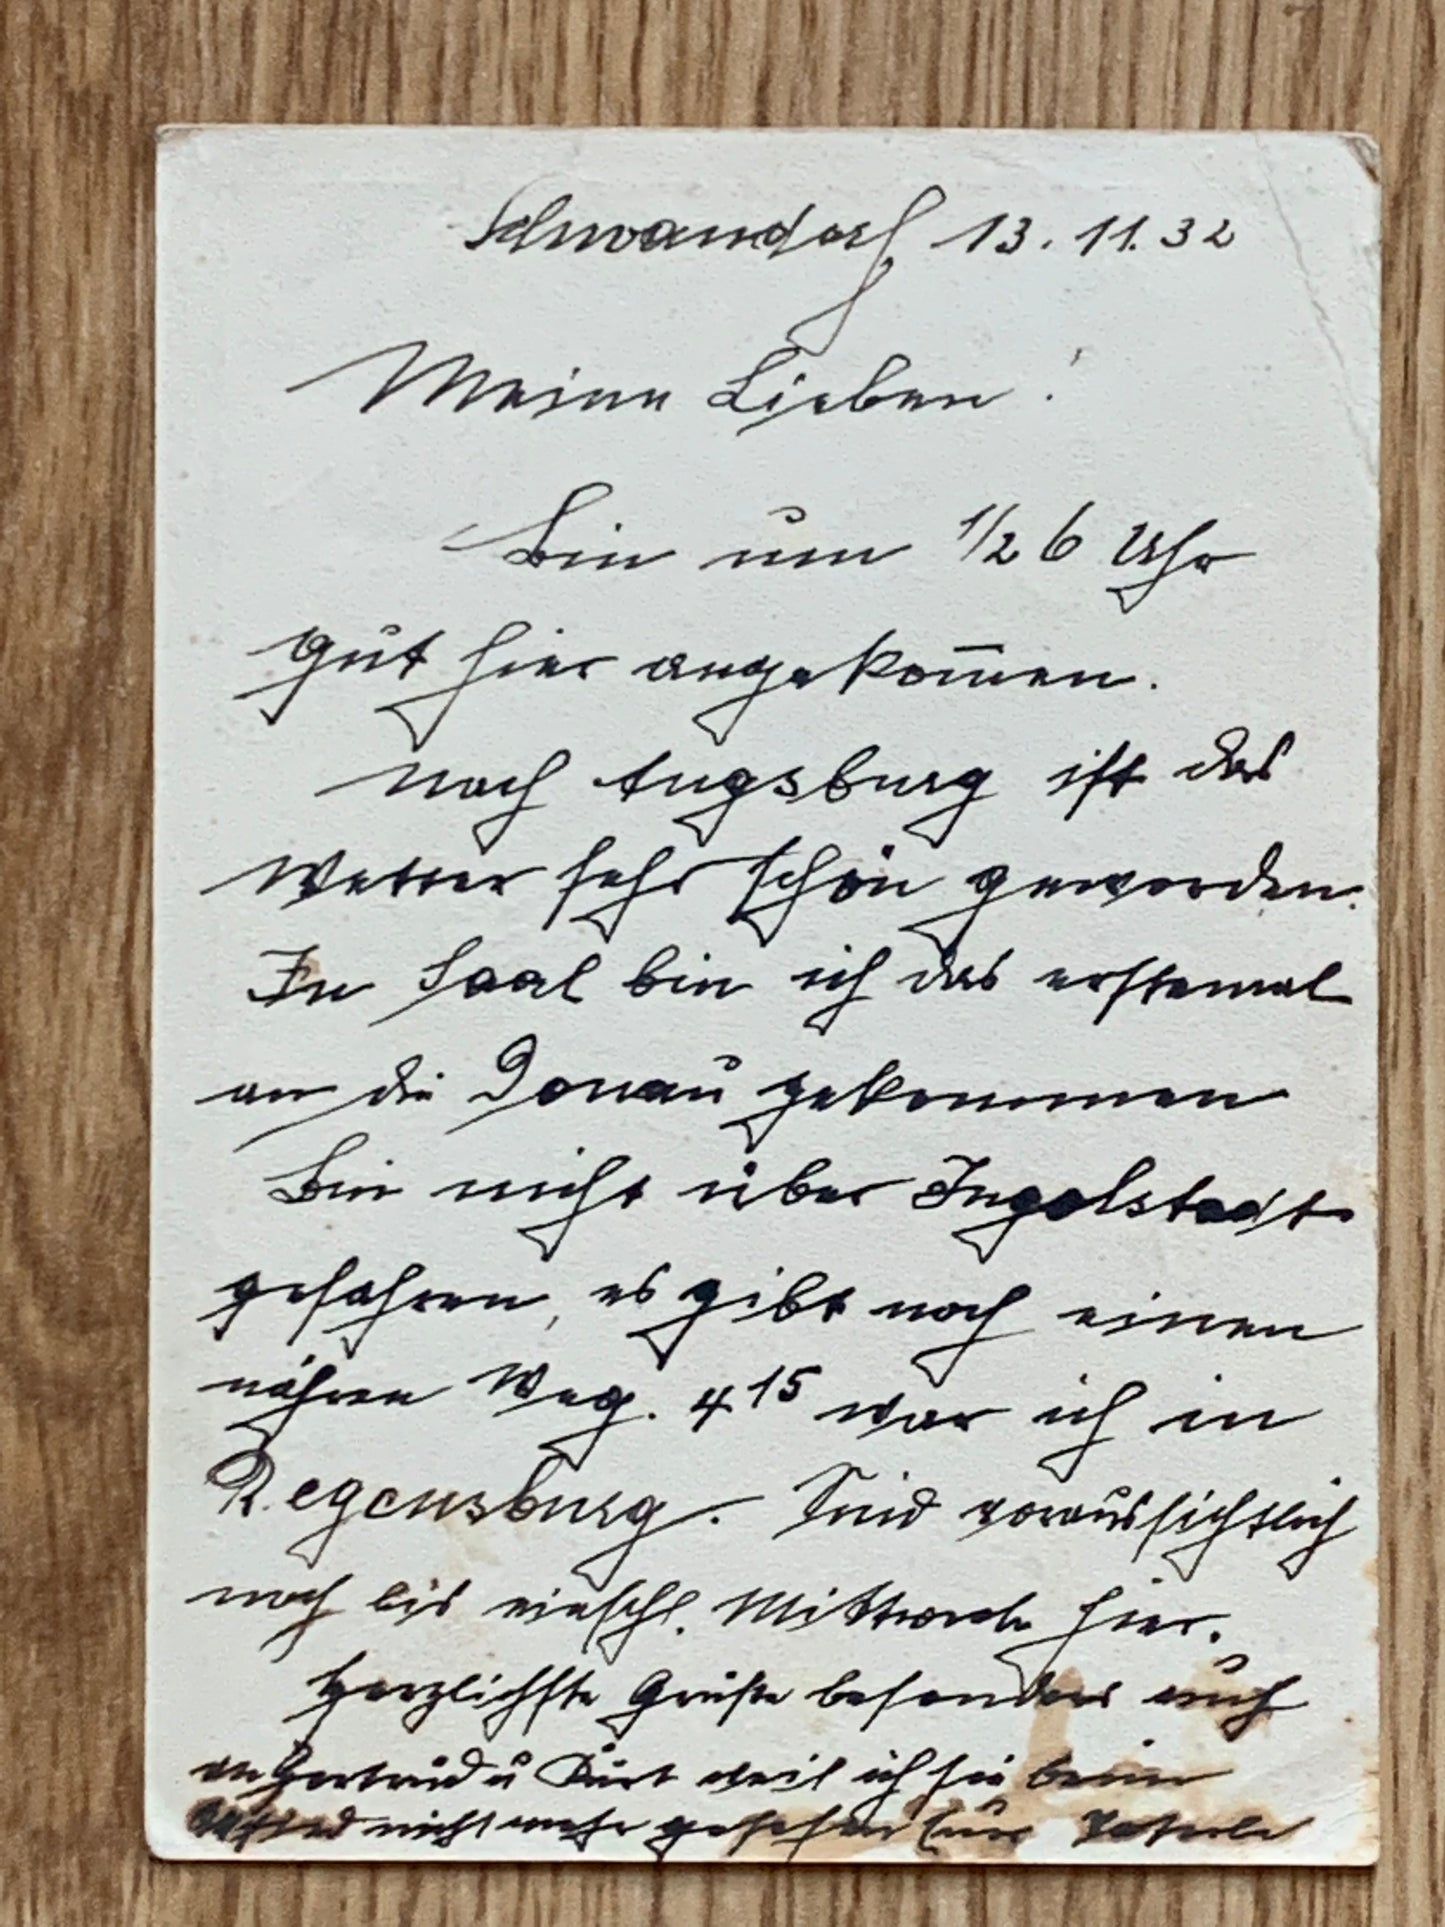 Schwandorf 13.11.32
Meine Lieben!
Bin um 1/2 6 Uhr
gut hier angekom̄en.
Nach Augsburg ist das
Wetter sehr schön geworden.
In Saal bin ich das erstemal
an die Donau gekommen
Bin nicht über Ingolstadt
gefahren, es gibt noch einen
nähren Weg. 4¹⁵ war ich in
Regensburg. Sind voraussichtlich
noch bis einschl. Mittwoch hier.
Herzlichste Grüße besonders auch
an Gertrud u Kurt weil ich sie beim
nicht mehr gesehen